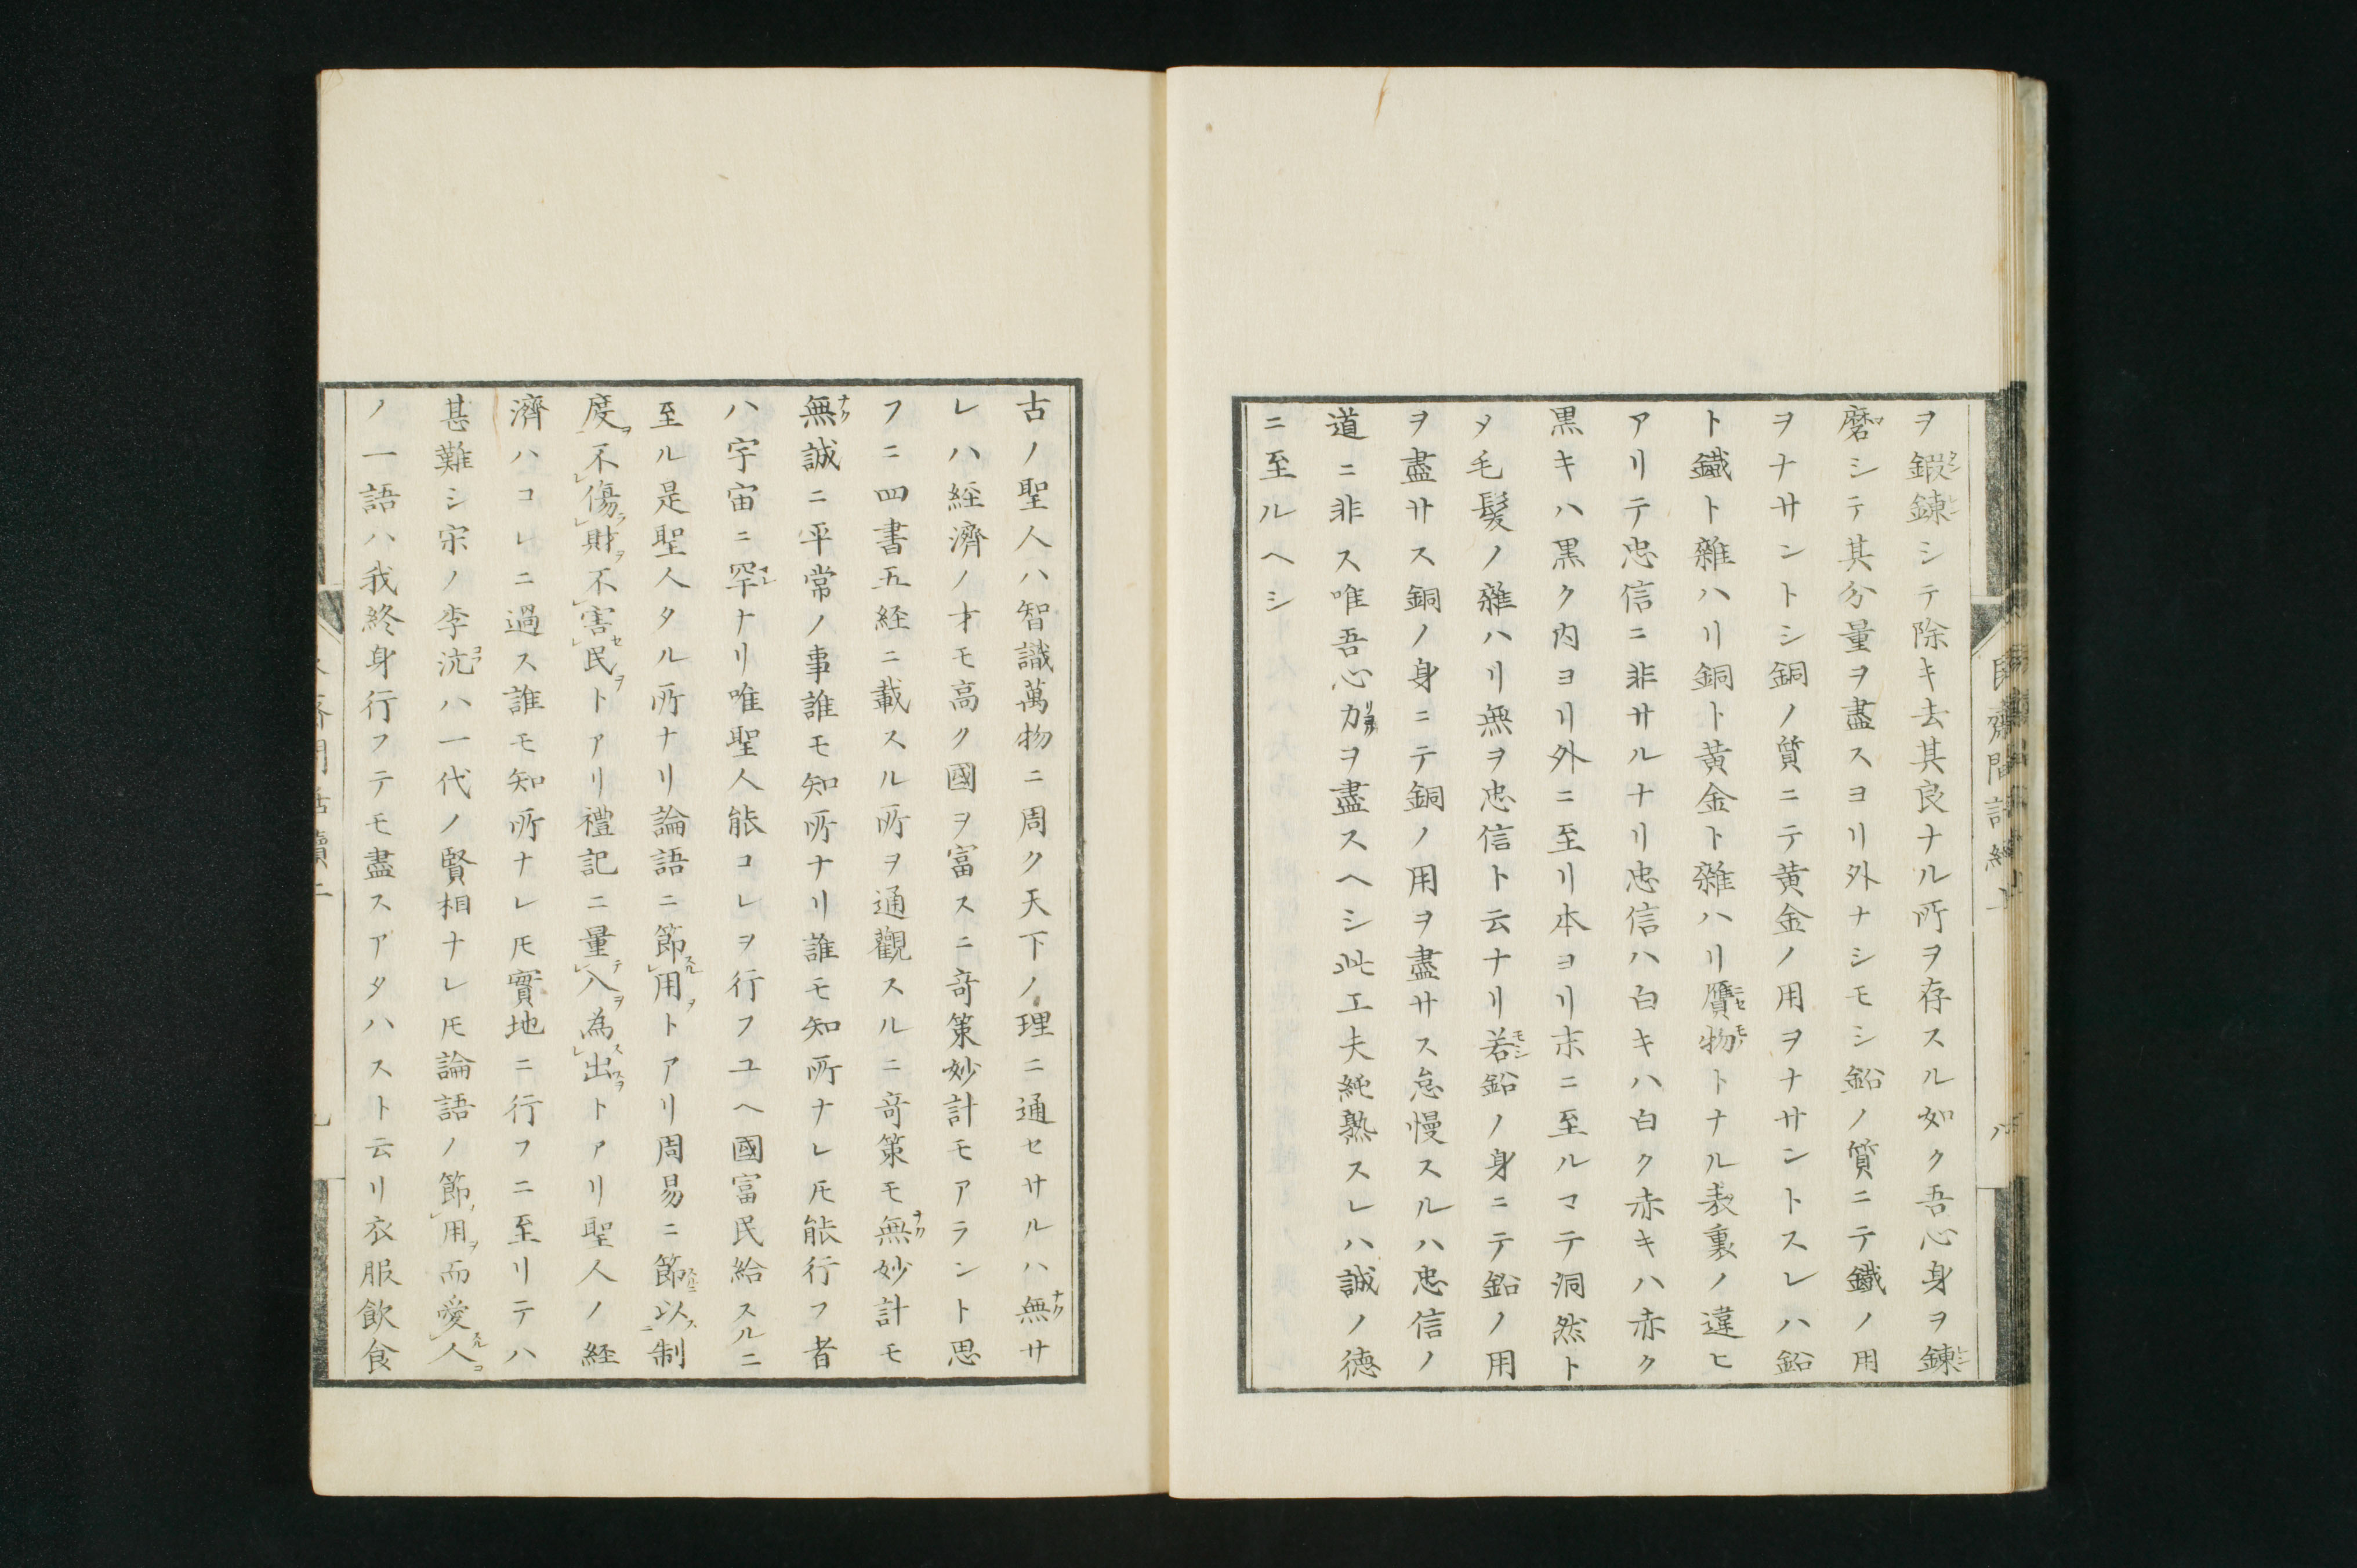 ヲ鍜鍊シテ除キ去其良ナル所ヲ存スル如ク吾心身ヲ鍊
磨シテ其分量ヲ盡スヨリ外ナシモシ鉛ノ質ニテ鐵ノ用
ヲナサントシ銅ノ質ニテ黄金ノ用ヲナサントスレハ鉛
ト鐵ト雜ハリ銅ト黄金ト雜ハリ贋物トナル表裏ノ違ヒ
アリテ忠信ニ非サルナリ忠信ハ白キハ白ク赤キハ赤ク
黒キハ黒ク内ヨリ外ニ至リ本ヨリ末ニ至ルマテ洞然ト
〆毛髮ノ雜ハリ無ヲ忠信ト云ナリ若鉛ノ身ニテ鉛ノ用
ヲ盡サス銅ノ身ニテ銅ノ用ヲ盡サス怠慢スルハ忠信ノ
道ニ非ス唯吾心力ヲ盡スヘシ此工夫純熟スレハ誠ノ徳
ニ至ルヘシ
古ノ聖人ハ智識萬物ニ周ク天下ノ理ニ通セサルハ無サ
レハ経濟ノ才モ高ク國ヲ富スニ竒策妙計モアラント思
フニ四書五経ニ載スル所ヲ通觀スルニ竒策モ無妙計モ
無誠ニ平常ノ事誰モ知所ナリ誰モ知所ナレ𪜈能行フ者
ハ宇宙ニ罕ナリ唯聖人能コレヲ行フユヘ國富民給スルニ
至ル是聖人タル所ナリ論語ニ節用トアリ周易ニ節以制
度不傷財不害民トアリ禮記ニ量入為出トアリ聖人ノ経
濟ハコレニ過ス誰モ知所ナレ𪜈實地ニ行フニ至リテハ
甚難シ宋ノ李沆ハ一代ノ賢相ナレ𪜈論語ノ節用而愛人
ノ一語ハ我終身行フテモ盡スアタハスト云リ衣服飲食